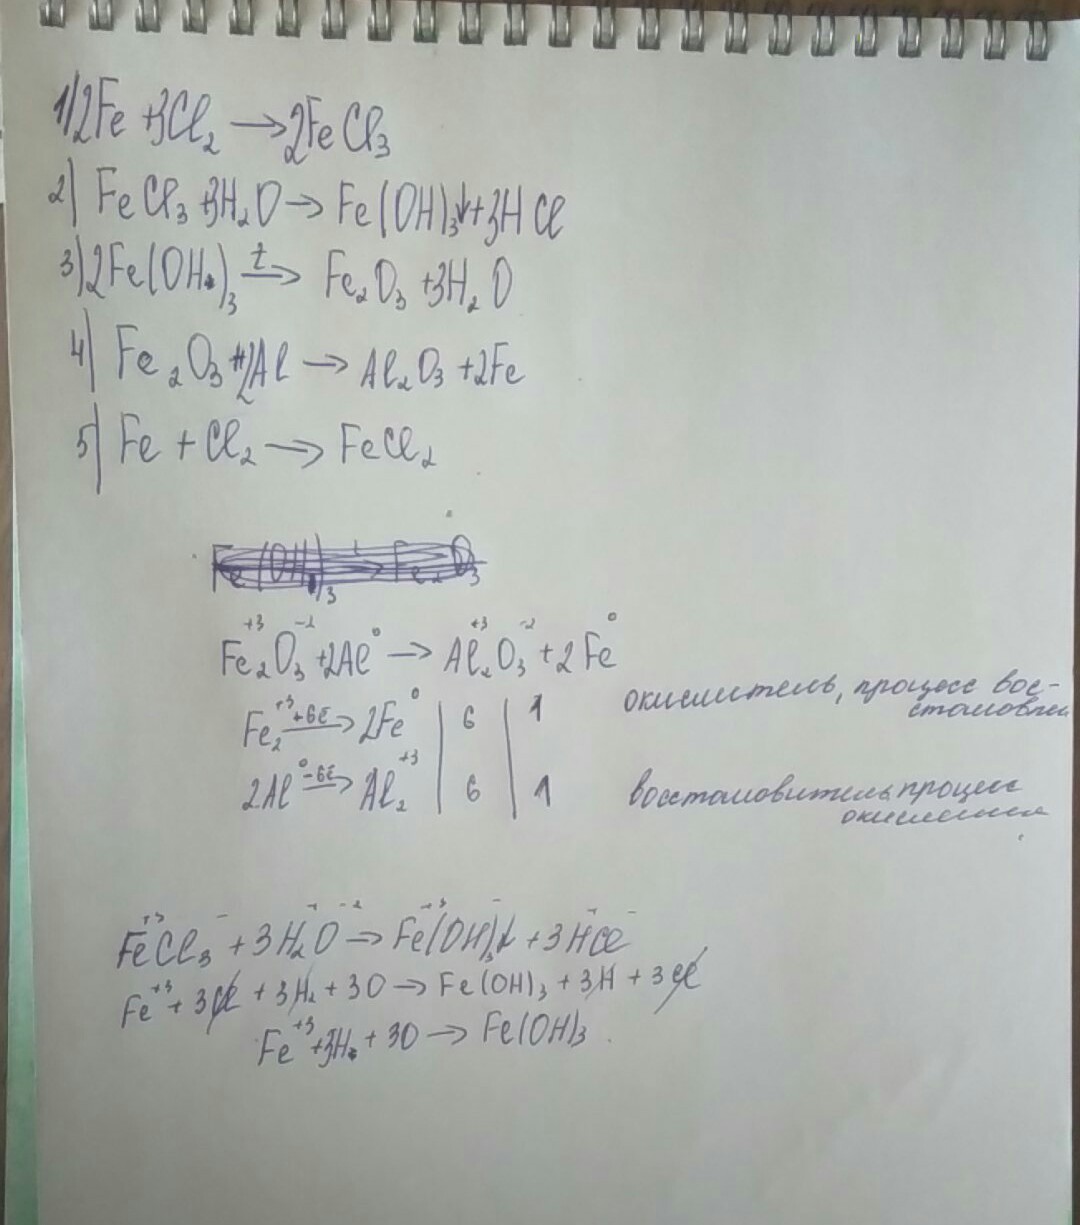 1) 2Fe + 3Cl₂ → 2FeCl₃
2) FeCl₃ + 3H₂O → Fe(OH)₃↓ + 3HCl
3) 2Fe(OH)₃ t→ Fe₂O₃ + 3H₂O
4) Fe₂O₃ + 2Al → Al₂O₃ + 2Fe
5) Fe + Cl₂ → FeCl₂
Fe₂⁺³O₃⁻² + 2Al⁰ → Al₂⁺³O₃⁻² + 2Fe⁰
Fe₂⁺³ +6ē→ 2Fe⁰ | 6 | 1 окислитель, процесс вос-
становлен
2Al⁰ -6ē→ Al₂⁺³ | 6 | 1 восстановитель, процесс
окисления
Fe⁺³Cl₃⁻ + 3H₂⁺O⁻² → Fe⁺³(OH)₃⁻↓ + 3H⁺Cl⁻
Fe⁺³ + 3Cl + 3H₂ + 3O → Fe(OH)₃ + 3H + 3Cl
Fe⁺³ + 3H₂ + 3O → Fe(OH)₃